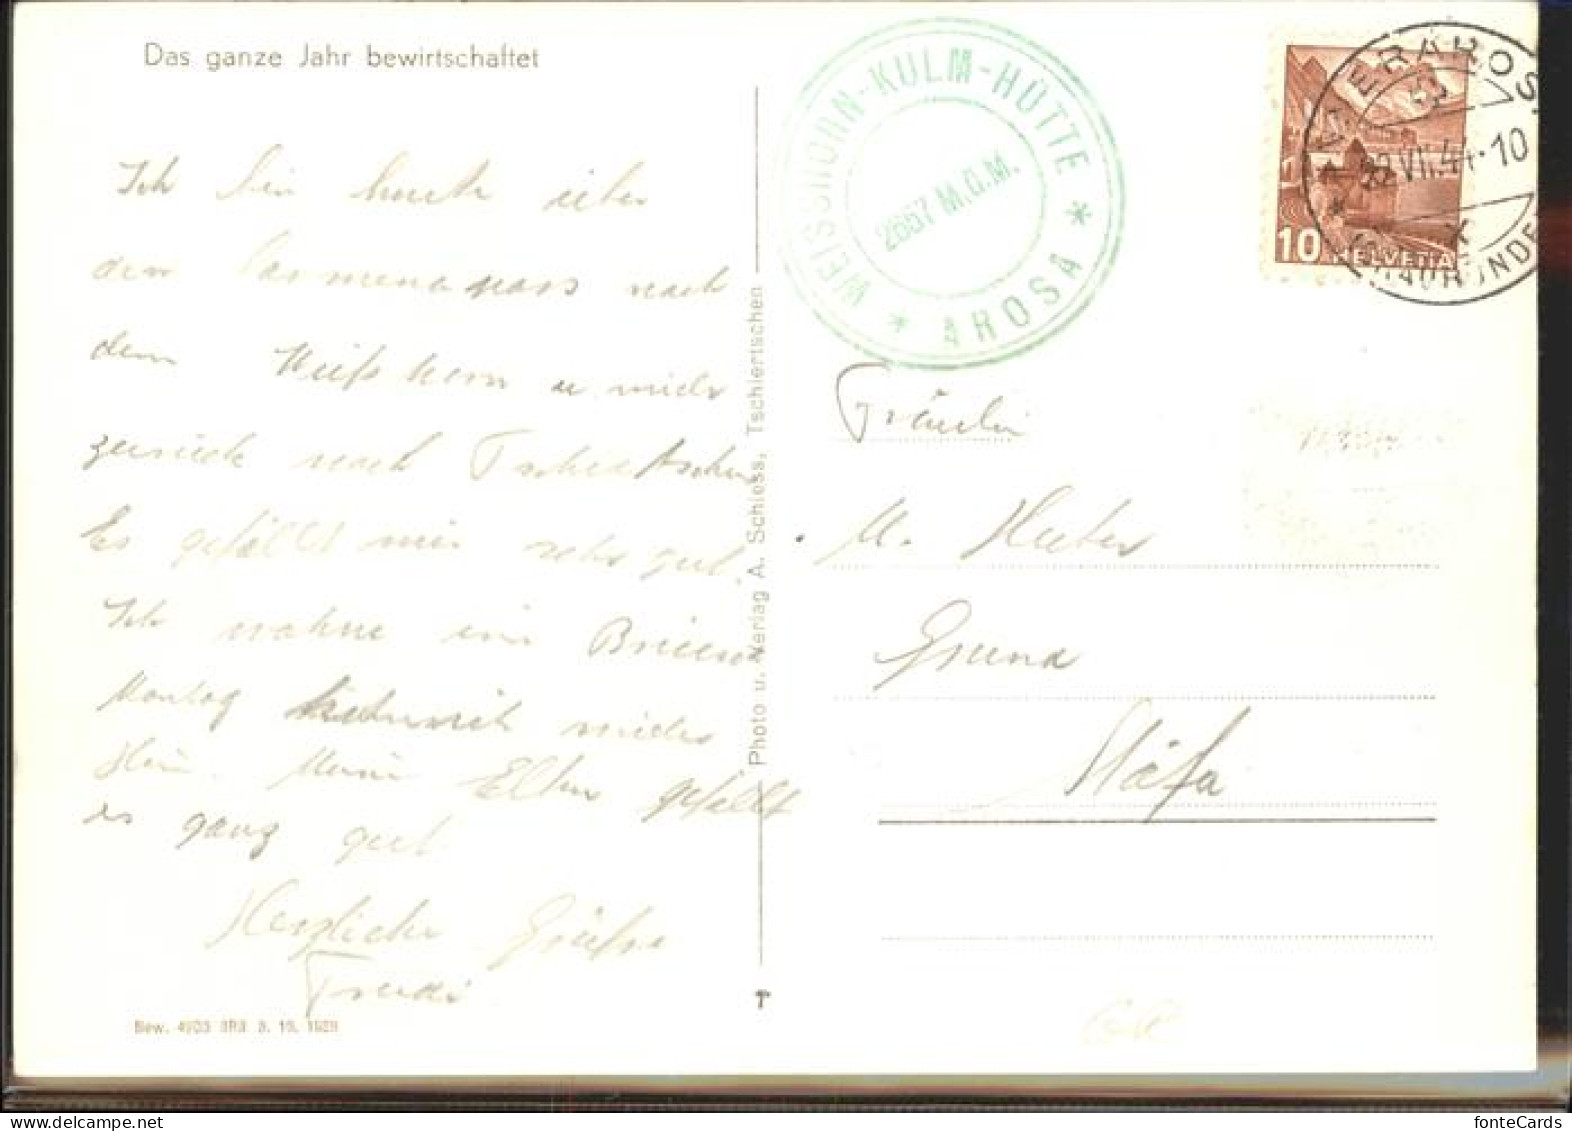 Das ganze Jahr bewirtschaftet
Ich bin heute über
den Carmenapass nach
dem Weisshorn u. wieder
zurück nach Tschiertschen
Es gefällt mir sehr gut.
Ich wohne im
Montag wieder
Heim. Meine Eltern gefällt
es ganz gut
Herzliche Grüsse
Trudi
Bew. 4903 BRB 3. 10. 1939
Photo u. Verlag A. Schloss, Tschiertschen
WEISSHORN-KULM-HÜTTE
2657 M.Ü.M.
* AROSA *
10 HELVETIA
INNERAROSA
22.VII.44.10
(GRAUBÜNDEN)
Fräulein
M. Huber
Grund
Stäfa
fonteCards